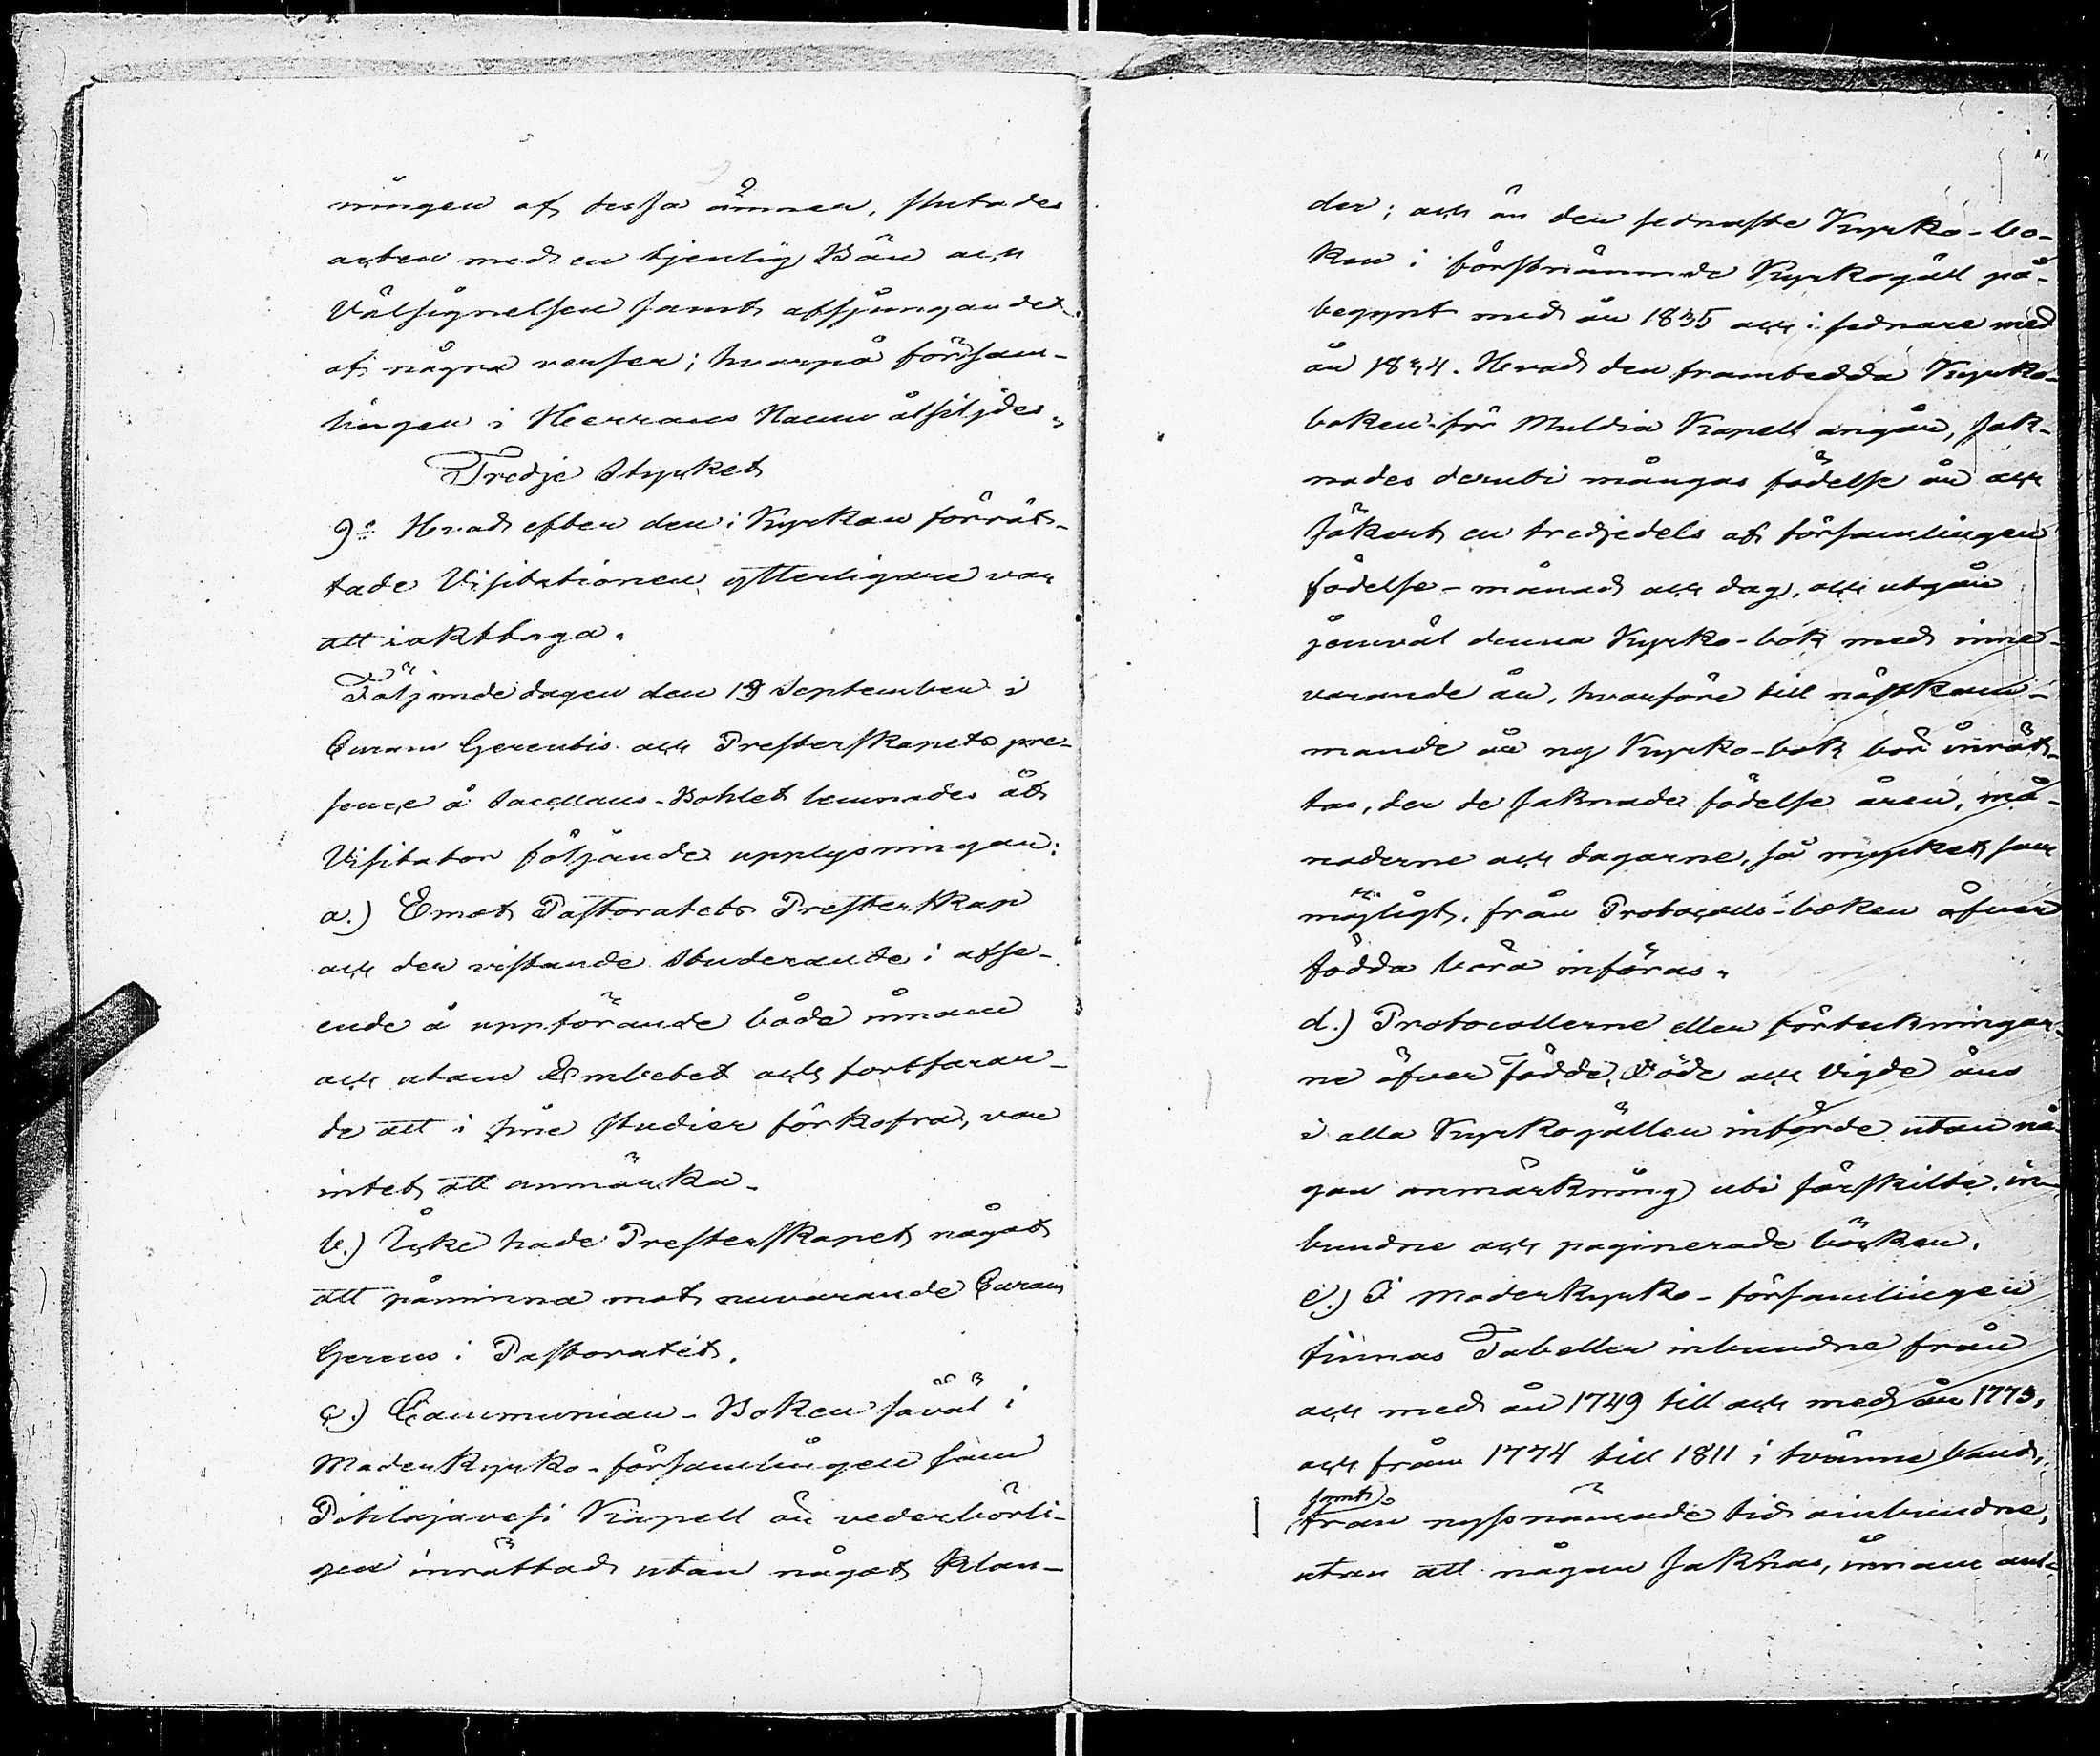 ningen af dessa ämnen, slutades
acten med en tjenlig Bön och
Välsignelsen samt afsjungandet
af några verser; hvarpå försam-
lingen i Herrans Namn åtskiljdes.
Tredje Stycket
9:o Hvad efter den i Kyrkan förrät-
tade Visitationen ytterligare var
att iakttaga.
Följande dagen den 19 September i
Curam Gerentis och Presterskapets pre-
sence å Sacellans-Bohlet lemnades åt
Visitator följande upplysningar:
a.) Emot Pastoratets Presterskap
och der vistande Studerande i afse-
ende å uppförande både innom
och utom Embetet och fortfaran-
de att i sine studier förkofra, var
intet att anmärka.
b.) Icke hade Presterskapet något
att påminna mot nuvarande Curam
Gerens i Pastoratet.
c.) Communion-Boken såväl i
Moderkyrko-församlingen som
Pihlajavesi Kapell är vederbörli-
gen inrättad utan något klan-
der; och är den sednaste Kyrko-bo-
ken i förstnämnde Kyrkogäll på-
begynt med år 1835 och i sednare med
år 1834. Hvad den frambedda Kyrko-
boken för Multia Kapell angår, sak-
nades derubi mångas födelse år och
säkert en tredjedels af församlingen
födelse-månad och dag, och utgår
jemväl denna Kyrko-bok med inne-
varande år, hvarföre till nästkom-
mande år ny Kyrko-bok bör inrät-
tas, der de saknade födelse åren, må-
naderne och dagarne, så mycket som
möjligt, från Protocolls-boken öfver
födda böra införas.
d.) Protocollerne eller förteckningar-
ne öfver Födde, Döde och Vigde äro
i alla Kyrkogällen införde utan nå-
gon anmärkning uti särskilte in-
bundne och paginerade böcker.
e.) I Moderkyrko-församlingen
finnas Tabeller inbundne från
och med år 1749 till och med år 1773,
och från 1774 till 1811 i tvänne band,
samt
från nyssnämnde tid oinbundne,
utan att någon saknas, innom ant-